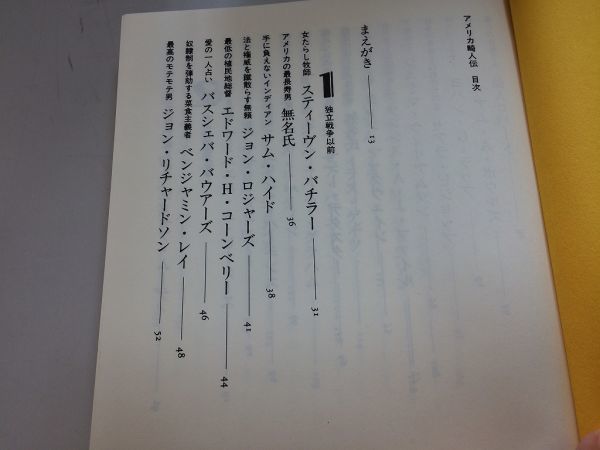 アメリカ畸人伝 目次
まえがき 13
1 独立戦争以前
女たらし牧師 スティーヴン・バチラー 31
アメリカの最長寿男 無名氏 36
手に負えないインディアン サム・ハイド 38
法と権威を蹴散らす無頼 ジョン・ロジャーズ 41
最低の植民地総督 エドワード・H・コーンベリー 44
愛の一人占い バスシェバ・バウアーズ 46
奴隷制を弾劾する菜食主義者 ベンジャミン・レイ 48
最高のモテモテ男 ジョン・リチャードソン 52